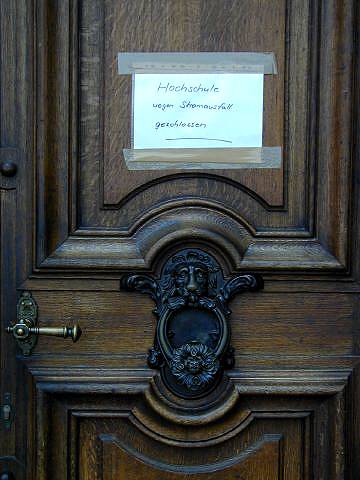 Hochschule
wegen Stromausfall
geschlossen